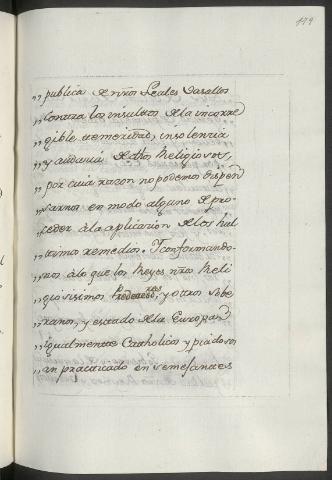 179
,, publica de nros Leales Vasallos
,, contra los insultos de la incorre
,, gible temeridad, insolencia
,, y audacia de dhos Religiosos,
,, por cuia razon no podemos dispen
,, sarnos en modo alguno de pro-
,, ceder à la aplicacion de los hul
,, timos remedios. Y conformando-
,, nos à lo que los Reyes nros Reli
,, giosisimos Predecesres, y otros sobe
,, ranos, y estado de la Europa
,, igualmente Catholicos y piadosos
,, an practicado en semejantes